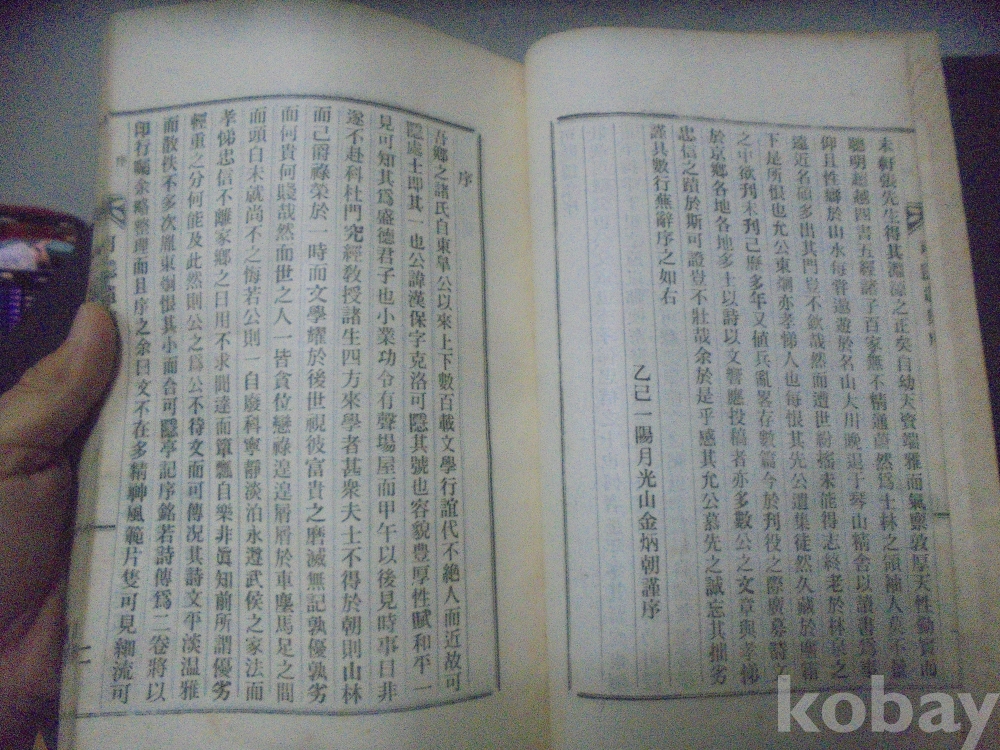 未軒張先生得其淵源之正矣自幼天資端雅而氣禀敦厚天性勤實而
聰明超越四書五經諸子百家無不精通蔚然爲士林之領袖人莫不
仰且性癖於山水每嘗遊於名山大川晩退于琴山精舍以讀書爲
遠近名碩多出其門豈不欽哉然而遭世紛撓未能得志終老於林泉之
下是所恨也允公東烱亦孝悌人也每恨其先公遺集徒然久藏於塵箱
之中欲刊未刊已歷多年又値兵亂畧存數篇今於刊役之際廣募詩文
於京鄕各地各地多士以詩以文響應投稿者亦多數公之文章與孝悌
忠信之蹟於斯可證豈不壯哉余於是乎感其允公慕先之誠忘其拙劣
謹具數行蕪辭序之如右
乙已一陽月光山金炳朝謹序
序
吾鄕之諸氏自東皐公以來上下數百載文學行誼代不絶人而近故可
隱處士即其一也公諱漢保字克洛可隱其號也容貌豊厚性賦和平一
見可知其爲盛德君子也小業功令有聲場屋而甲午以後見時事日非
遂不赴科杜門究經敎授諸生四方來學者甚衆夫士不得於朝則山林
而已爵祿榮於一時而文學耀於後世視彼富貴之磨滅無記孰優孰劣
而何貴何賤哉然而世之人一皆貪位戀祿遑遑屑屑於車塵馬足之間
而頭白未就尚不之悔若公則一自廢科寧靜淡泊永遵武侯之家法而
孝悌忠信不離家鄕之日用不求聞達而簞瓢自樂非眞知前所謂優劣
輕重之分何能及此然則公之爲公不待文而可傳況其詩文平淡温雅
而散佚不多次胤東烱恨其小而合可隱亭記序銘若詩傳爲二卷將以
印行囑余略整理而且序之余曰文不在多精神風範片隻可見細流可
序
二
kobay